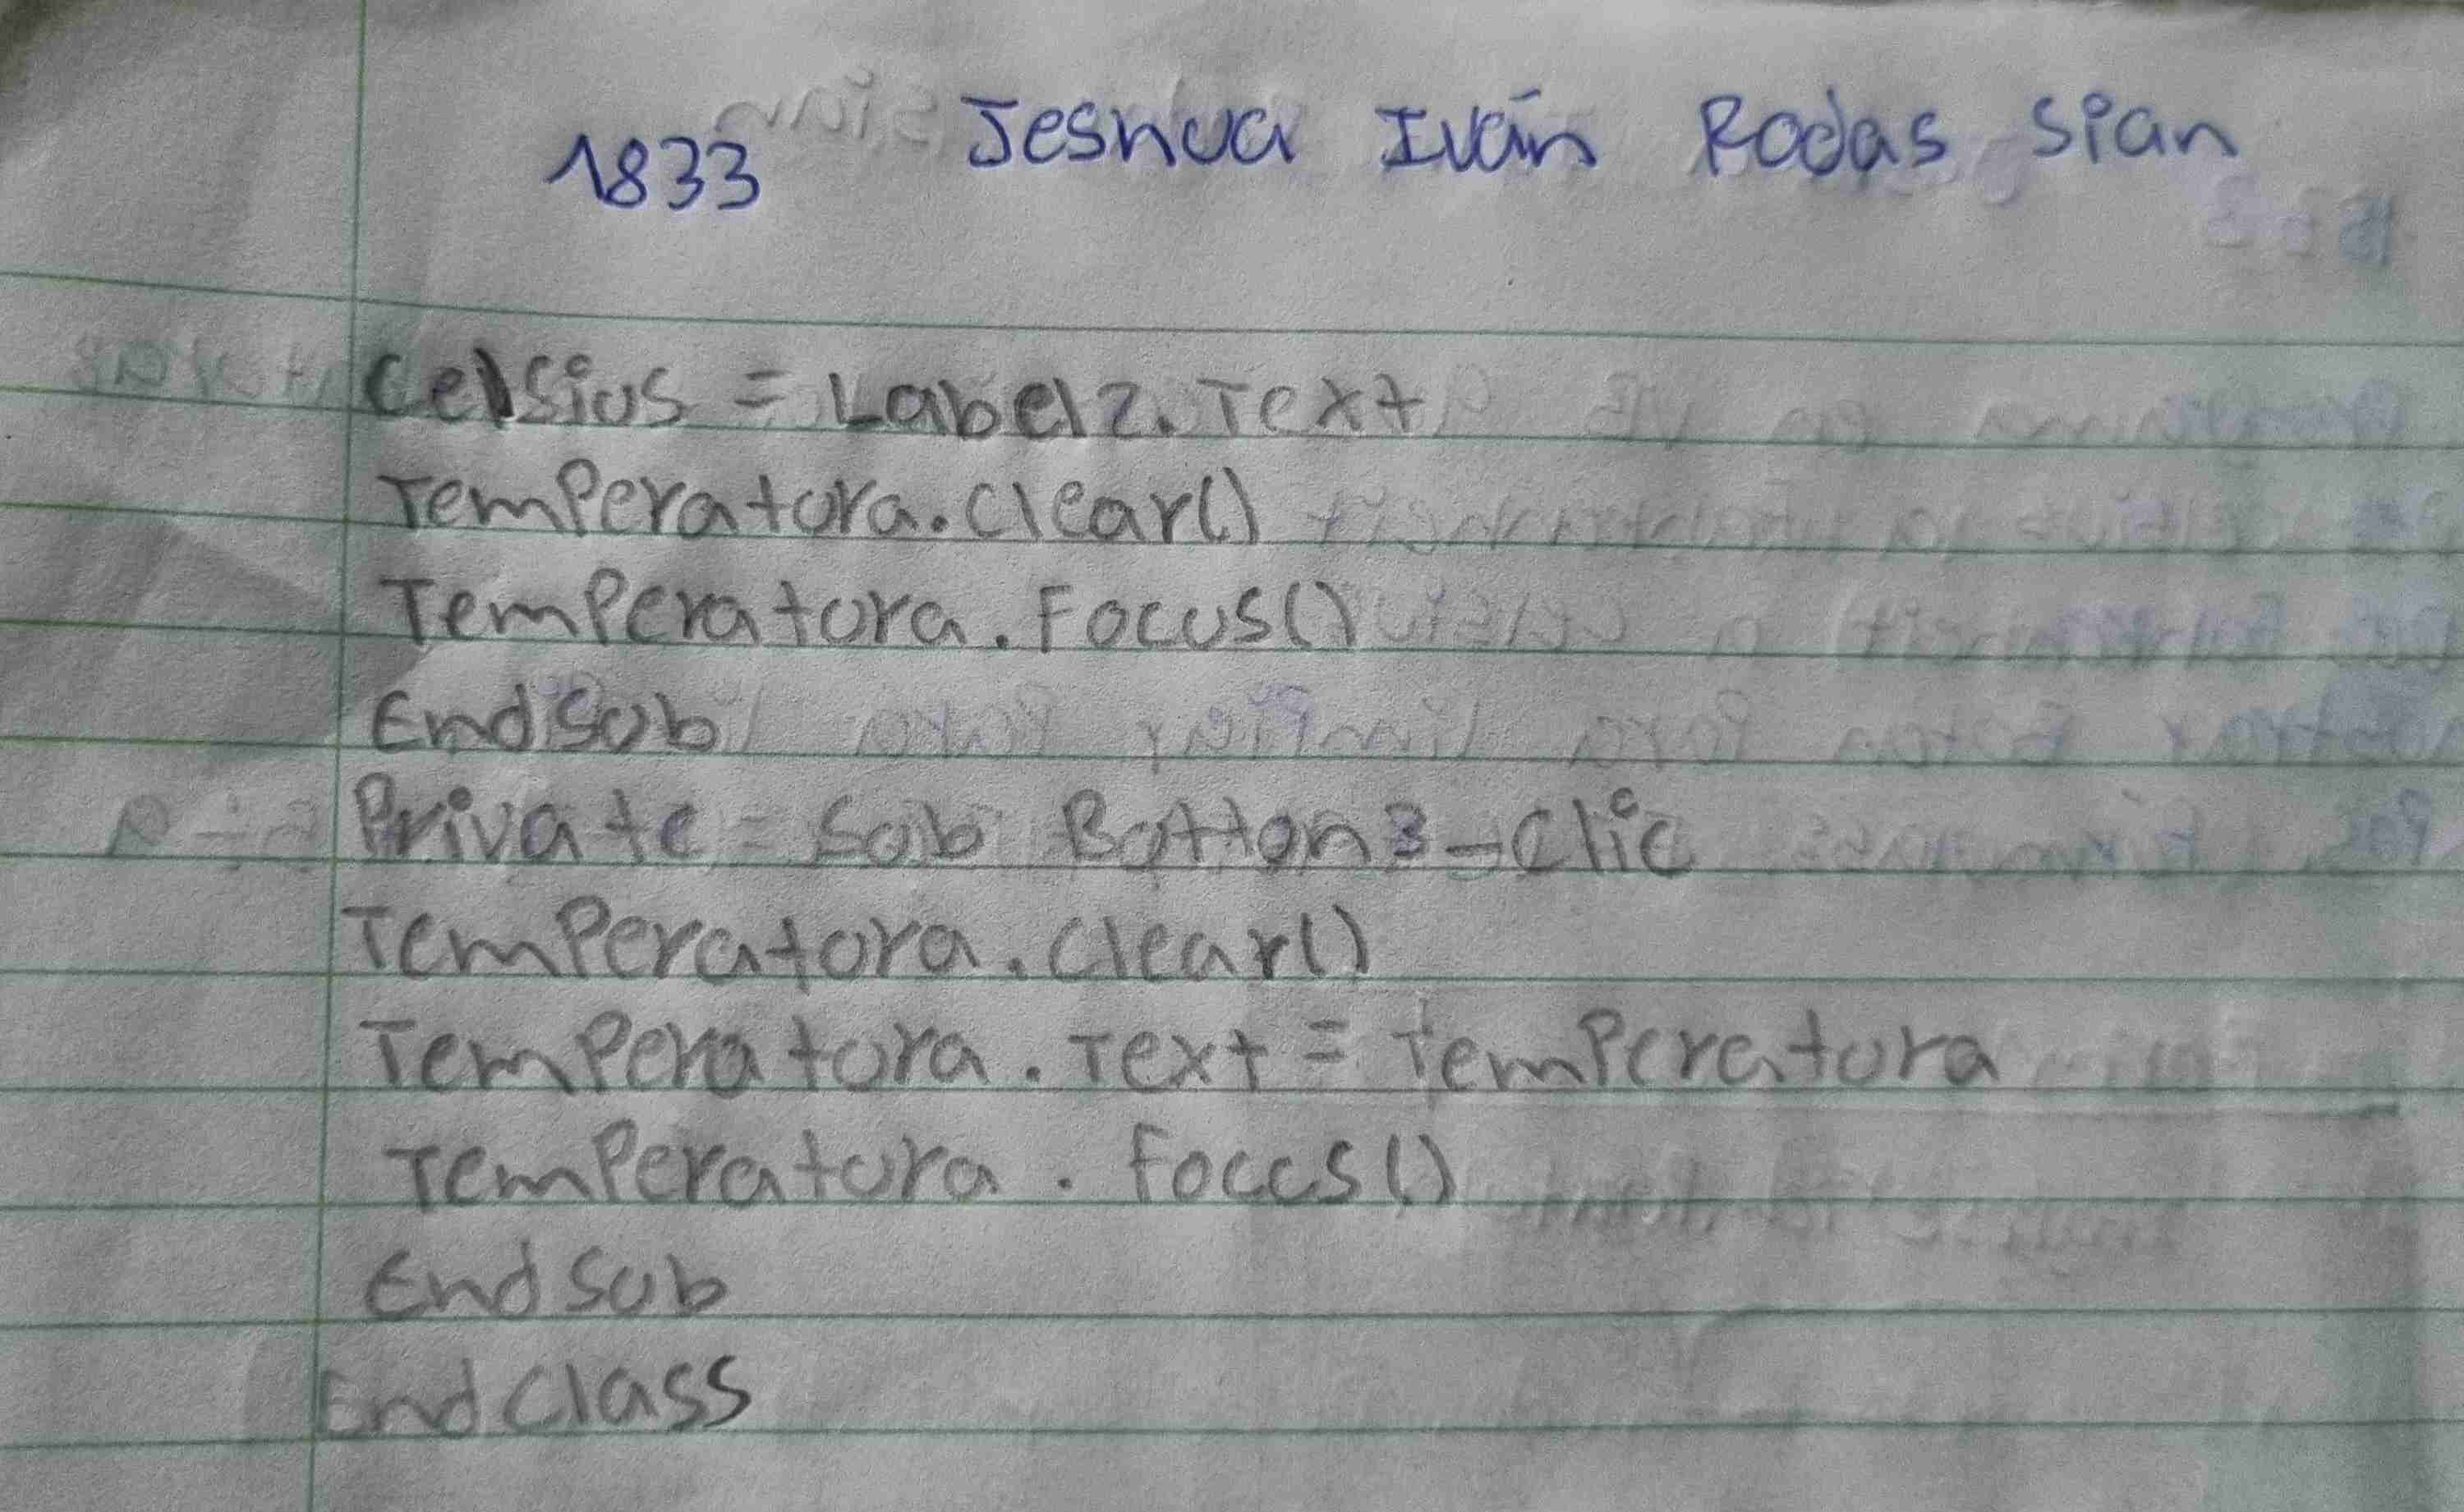 1833 Jeshua Iván Rodas Sian
Celsius = Label2.Text
TemPeratura.Clear()
TemPeratura.Focus()
End Sub
Private = Sub Botton3-Clic
TemPeratura.Clear()
TemPeratura.Text = TemPeratura
TemPeratura.Foccs()
End Sub
End Class